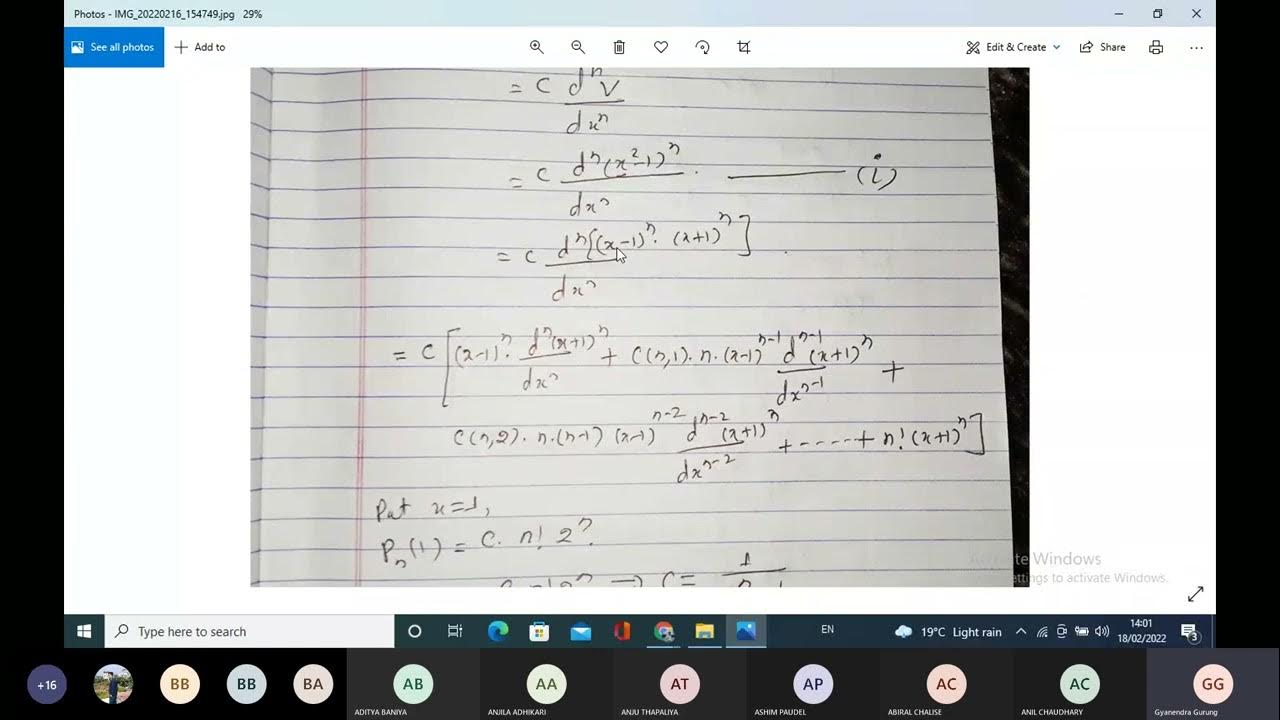 Photos - IMG_20220216_154749.jpg 29%
See all photos
Add to
Edit & Create
Share
= C dⁿ V / dxⁿ
= C dⁿ(x²-1)ⁿ / dxⁿ . ——— (i)
= C dⁿ[(x-1)ⁿ. (x+1)ⁿ] / dxⁿ
= C [(x-1)ⁿ. dⁿ(x+1)ⁿ / dxⁿ + C(n,1). n. (x-1)ⁿ⁻¹ dⁿ⁻¹(x+1)ⁿ / dxⁿ⁻¹ +
C(n,2). n.(n-1) (x-1)ⁿ⁻² dⁿ⁻²(x+1)ⁿ / dxⁿ⁻² + ----- + n! (x+1)ⁿ]
Put x=1,
Pₙ(1) = C. n! 2ⁿ.
→ C = 1
Windows
ettings to activate Windows.
Type here to search
EN
19°C Light rain
14:01
18/02/2022
3
+16
BB
BB
BA
AB
AA
AT
AP
AC
AC
GG
ADITYA BANIYA
ANJILA ADHIKARI
ANJU THAPALIYA
ASHIM PAUDEL
ABIRAL CHALISE
ANIL CHAUDHARY
Gyanendra Gurung